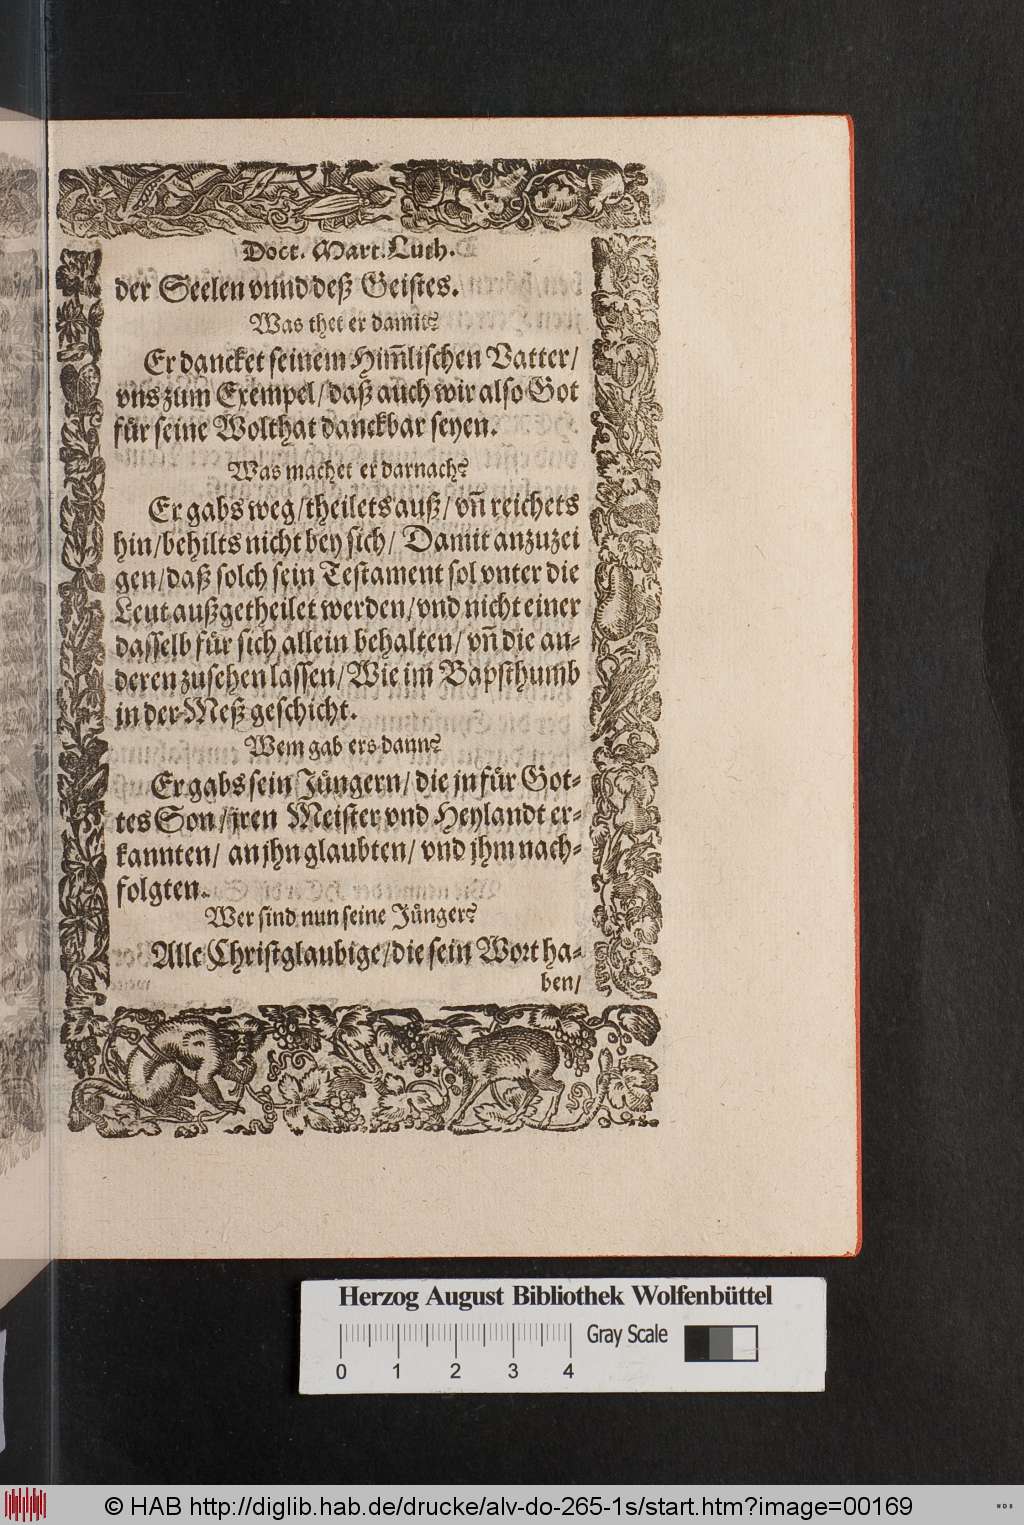 Doct. Mart. Luth.
der Seelen vnnd deß Geistes.
Was thet er damit?
Er dancket seinem Him̃lischen Vatter/
vns zum Exempel/ daß auch wir also Got
für seine Wolthat danckbar seyen.
Was machet er darnach?
Er gabs weg/ theilets auß/ vñ reichets
hin/ behilts nicht bey sich/ Damit anzuzei
gen/ daß solch sein Testament sol vnter die
Leut außgetheilet werden/ vnd nicht einer
dasselb für sich allein behalten/ vñ die an-
deren zusehen lassen/ Wie im Bapsthumb
in der Meß geschicht.
Wem gab ers dann?
Er gabs sein Jüngern/ die jn für Got-
tes Son/ jren Meister vnd Heylandt er-
kannten/ an jhn glaubten/ vnd jhm nach-
folgten.
Wer sind nun seine Jünger?
Alle Christglaubige/ die sein Wort ha-
ben/
Herzog August Bibliothek Wolfenbüttel
Gray Scale
0 1 2 3 4
© HAB http://diglib.hab.de/drucke/alv-do-265-1s/start.htm?image=00169